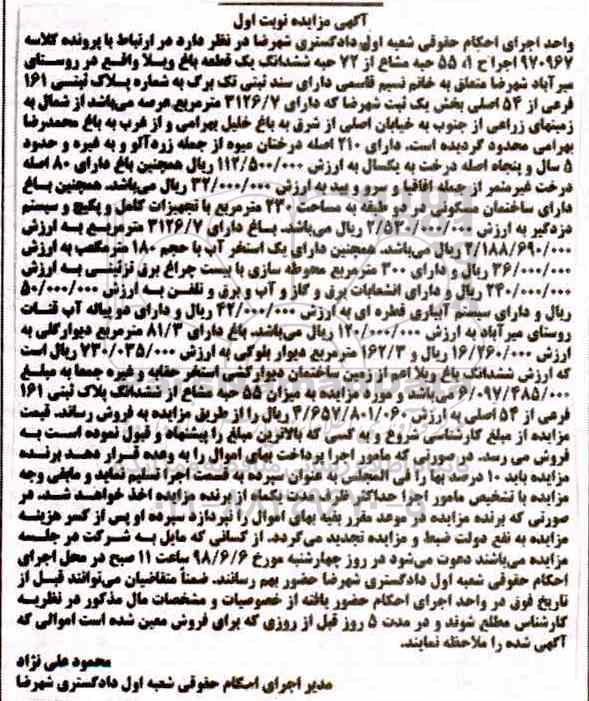 آگهی مزایده نوبت اول
واحد اجرای احکام حقوقی شعبه اول دادگستری شهرضا در نظر دارد در ارتباط با پرونده کلاسه
۹۷۰۹۶۷ اجراح ۱، ۵۵ حبه مشاع از ۷۲ حبه ششدانگ یک قطعه باغ ویلا واقع در روستای
میرآباد شهرضا متعلق به خانم نسیم قاسمی دارای سند ثبتی تک برگ به شماره پلاک ثبتی ۱۶۱
فرعی از ۵۴ اصلی بخش یک ثبت شهرضا که دارای ۳۱۲۶/۷ مترمربع عرصه می‌باشد از شمال به
زمینهای زراعی از جنوب به خیابان اصلی از شرق به باغ خلیل بهرامی و از غرب به باغ محمدرضا
بهرامی محدود گردیده است. دارای ۲۱۰ اصله درختان میوه از جمله زردآلو و به غیره و حدود
۵ سال و پنجاه اصله درخت به یکسال به ارزش ۱۱۲/۵۰۰/۰۰۰ ریال همچنین باغ دارای ۸۰ اصله
درخت غیرمثمر از جمله اقاقیا و سرو و بید به ارزش ۳۲/۰۰۰/۰۰۰ ریال می‌باشد. همچنین باغ
دارای ساختمان مسکونی در دو طبقه به مساحت ۲۳۰ مترمربع با تجهیزات کامل و پکیج و سیستم
دزدگیر به ارزش ۲/۵۳۰/۰۰۰/۰۰۰ ریال می‌باشد. باغ دارای ۳۱۲۶/۷ مترمربع به ارزش
۲/۱۸۸/۶۹۰/۰۰۰ ریال می‌باشد. همچنین دارای یک استخر آب با حجم ۱۸۰ مترمکعب به ارزش
۳۶/۰۰۰/۰۰۰ ریال و دارای ۳۰۰ مترمربع محوطه سازی با بیست چراغ برق تزئینی به ارزش
۲۴۰/۰۰۰/۰۰۰ ریال و دارای انشعابات برق و گاز و آب و برق و تلفن به ارزش ۵۰/۰۰۰/۰۰۰
ریال و دارای سیستم آبیاری قطره ای به ارزش ۴۲/۰۰۰/۰۰۰ ریال و دارای دو پیاله آب قنات
روستای میرآباد به ارزش ۱۲۰/۰۰۰/۰۰۰ ریال می‌باشد. باغ دارای ۸۱/۳ مترمربع دیوارگلی به
ارزش ۱۶/۲۶۰/۰۰۰ ریال و ۱۶۲/۳ مترمربع دیوار بلوکی به ارزش ۷۳۰/۰۳۵/۰۰۰ ریال است
که ارزش ششدانگ باغ ویلا اعم از زمین ساختمان دیوارکشی استخر حقابه و غیره جمعا به مبلغ
۶/۰۹۷/۴۸۵/۰۰۰ می‌باشد و مورد مزایده به میزان ۵۵ حبه مشاع از ششدانگ پلاک ثبتی ۱۶۱
فرعی از ۵۴ اصلی به ارزش ۴/۶۵۷/۸۰۱/۰۶۰ ریال را از طریق مزایده به فروش رساند. قیمت
مزایده از مبلغ کارشناسی شروع و به کسی که بالاترین مبلغ را پیشنهاد و قبول نموده است به
فروش می رسد. در صورتی که مامور اجرا پرداخت بهای اموال را به وعده قرار دهد برنده
مزایده باید ۱۰ درصد بها را فی المجلس به عنوان سپرده به قسمت اجرا تسلیم نماید و مابقی وجه
مزایده با تشخیص مامور اجرا حداکثر ظرف مدت یکماه از برنده مزایده اخذ خواهد شد. در
صورتی که برنده مزایده در موعد مقرر بقیه بهای اموال را نپردازد سپرده او پس از کسر هزینه
مزایده به نفع دولت ضبط و مزایده تجدید می‌گردد. از کسانی که مایل به شرکت در جلسه
مزایده می‌باشند دعوت می‌شود در روز چهارشنبه مورخ ۹۸/۶/۶ ساعت ۱۱ صبح در محل اجرای
احکام حقوقی شعبه اول دادگستری شهرضا حضور بهم رسانند. ضمناً متقاضیان می‌توانند قبل از
تاریخ فوق در واحد اجرای احکام حضور یافته از خصوصیات و مشخصات مال مذکور در نظریه
کارشناس مطلع شوند و در مدت ۵ روز قبل از روزی که برای فروش معین شده است اموالی که
آگهی شده را ملاحظه نمایند.
محمود علی نژاد
مدیر اجرای احکام حقوقی شعبه اول دادگستری شهرضا